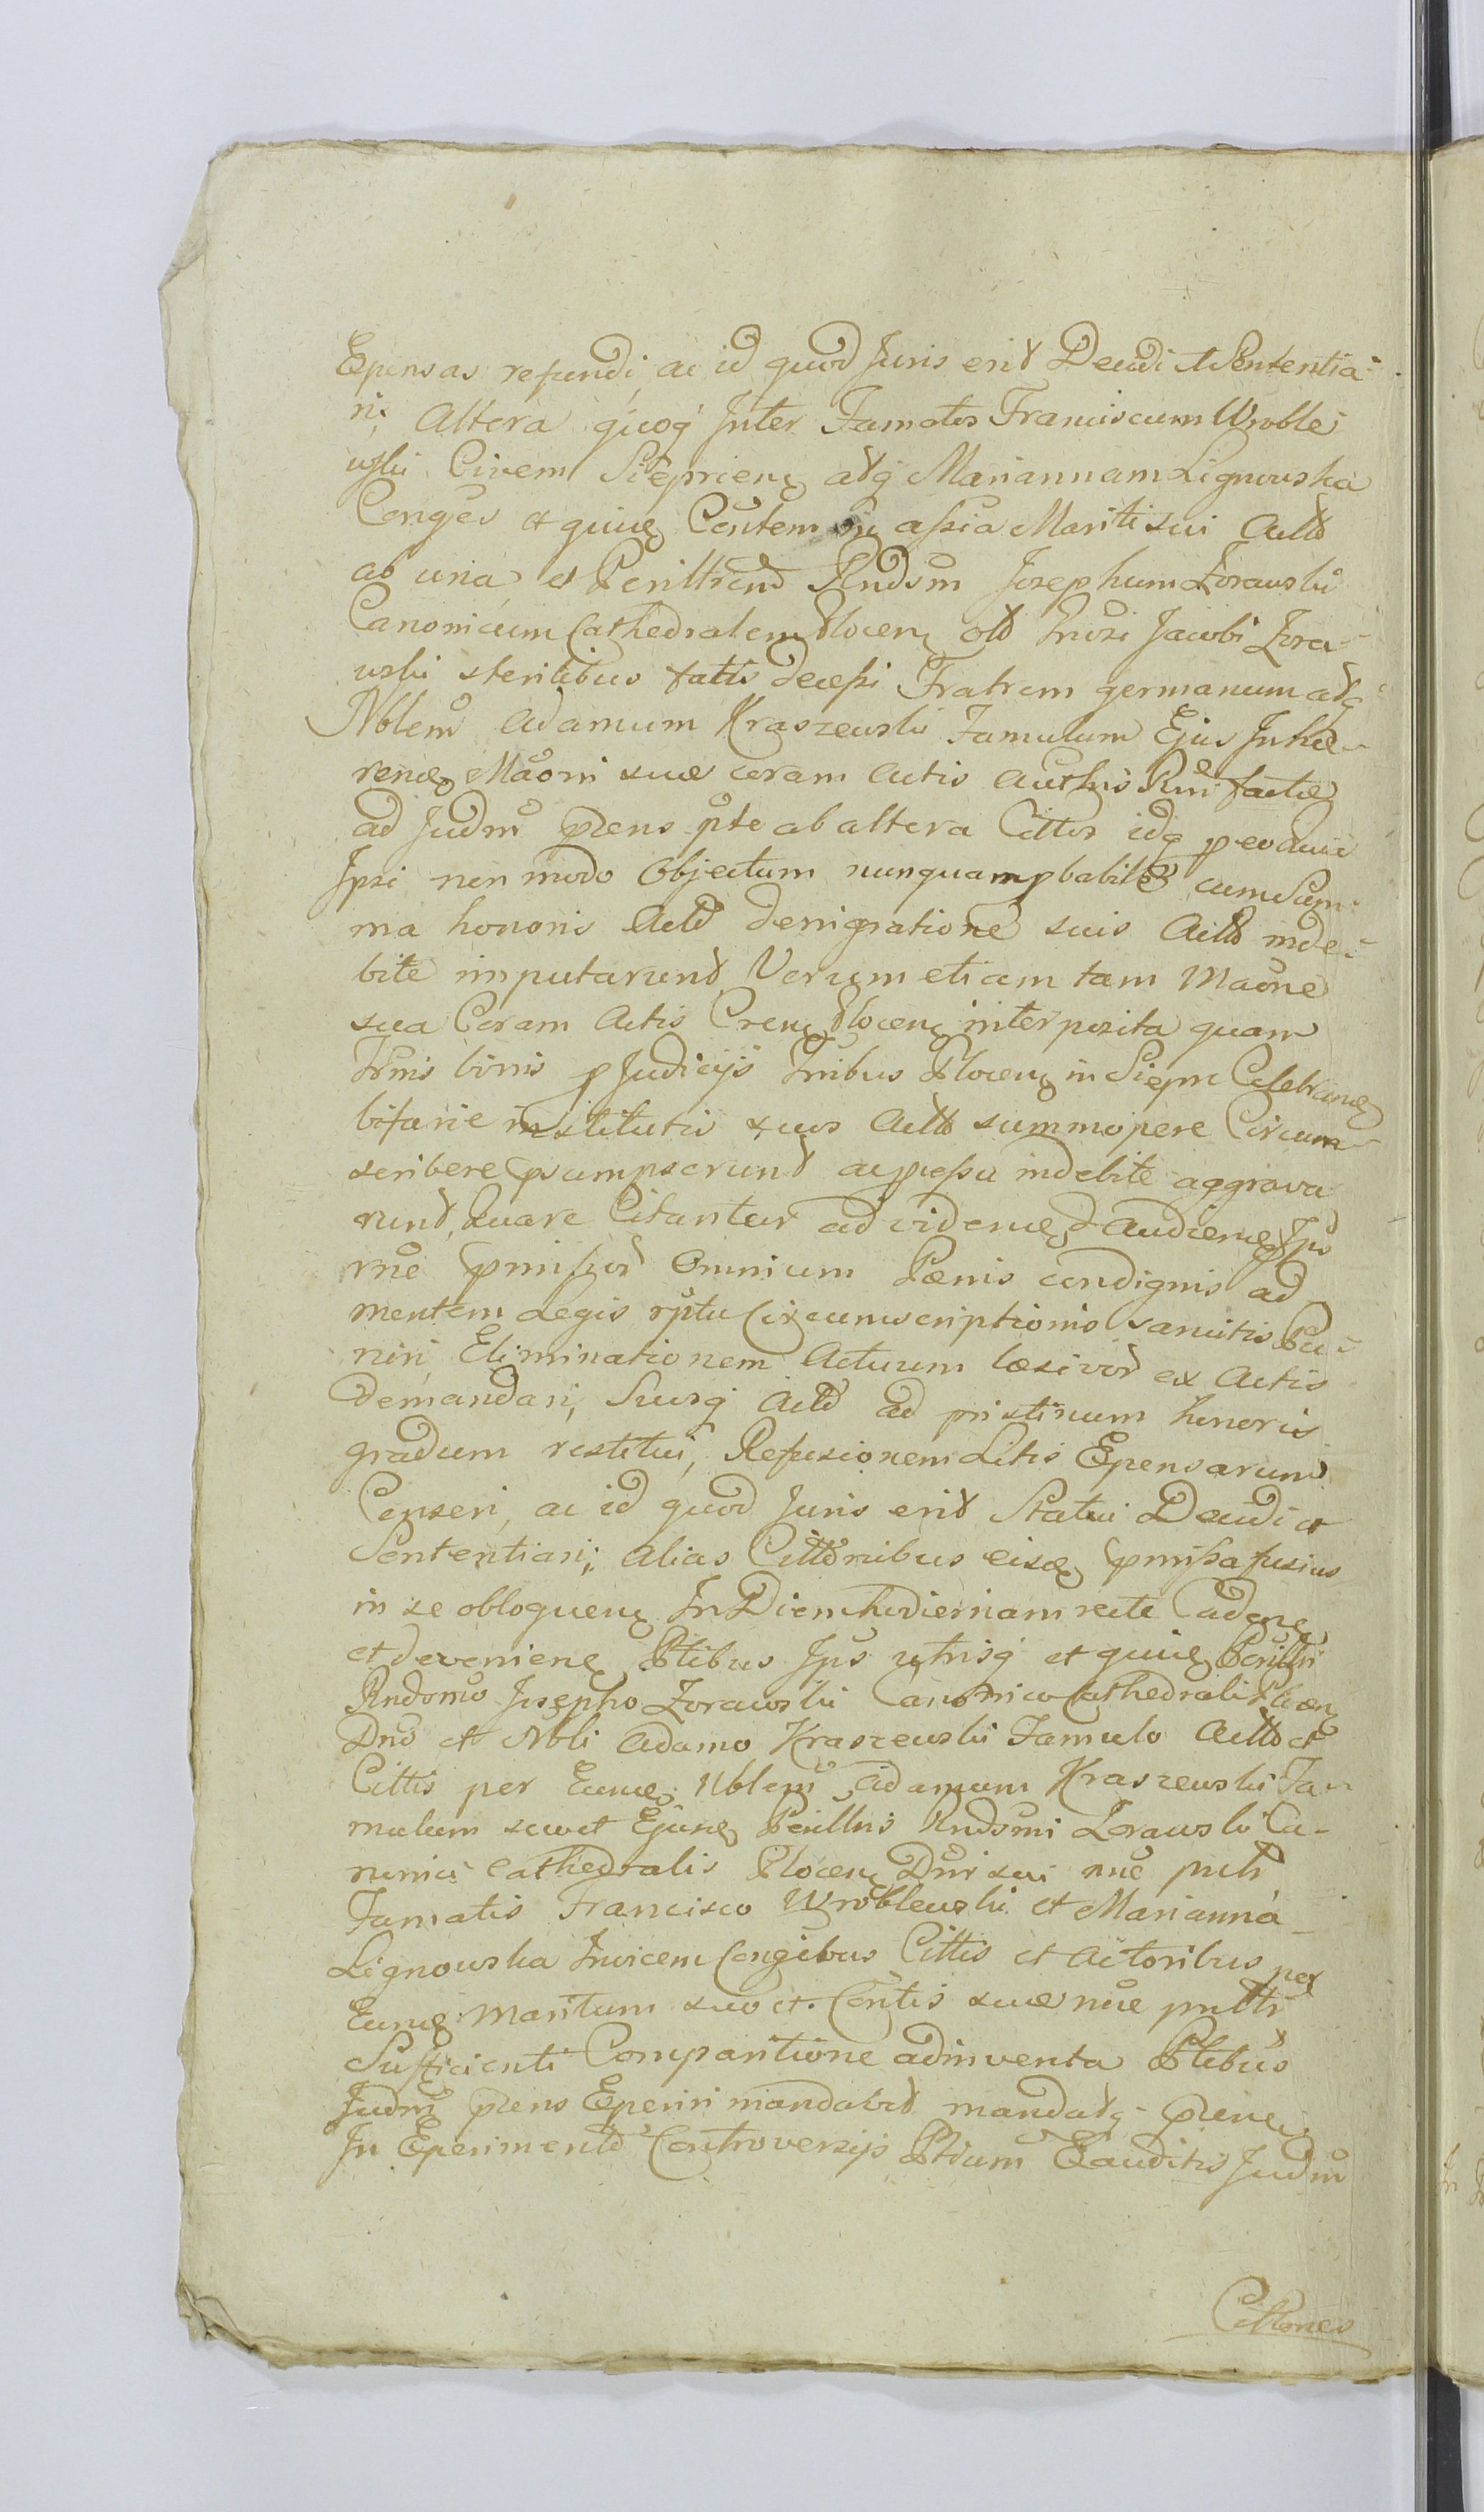 Expensas refundi, ac id quod Juris erit Decidi et Sententia-
ri; Altera quoq Inter Famatos Franciscum Wroble-
wski Civem Sieprcien atq Mariannam Lignowska
Conges et quive Contem in assia Mariti sui Actt
ab una et Perilltrem Rndsm Josephum Zorawski
Canonicum Cathedralem Plocen olt Jacobi Zora-
wski sterilibus fattis decessi Fratrem germanum atq
Nblem Adamum Kraszewski Famulum Ejus Inhæ-
ren Maoni suæ coram Actis Authis factæ
ad Judm præns pte ab altera Cittos idq peo
Ipsi non modo Objectum nunquam pbabile cum Sum-
ma honoris Actt denigratione suis Actt inde-
bite imputarunt Verum etiam tam Maone
sua Coram Actis Cren Plocen interposita quam
binis p Judicys Plocen in Siepre Celebran
bifarie institutis suos Actt summopere Circum-
scribere præsumpserunt ac indebite aggrava
runt, Quare Citantur ad viden et audien Ips
rne præmissor Omnium Pænis condignis ad
mentem Legis rptu Circumscriptionis sancitis Pu-
niri Eliminationem Actuum læsivor ex Actis
demandari, Suosq Actt ad pristinum honoris
gradum restitui, Refusionem Litis Expensarum
Censeri, ac id quod Juris erit Statui Decidi et
Sententiari; alias Cittonibus eisd præmissa fusius
in se obloquen In Diem hodiernam recte Caden
et devenien Ptibus Ips utrisq et quive Perilltri
Rndomo Josepho Zorawski Canonico Cathedrali Plocen
Dno et Nbli Adamo Kraszewski Famulo Actt et
Cittis per Eund Nblem Adamum Kraszewski Fa-
mulum suo et Ejusd Perilltris Rndsmi Zorawski Ca-
nonici Cathedralis Plocen Dni sui nne pntr
Famatis Francisco Wroblewski et Marianna
Lignowska Invicem Congibus Cittis et Actoribus per
Eund Maritum suo et Contis suæ nne pnttr
Sufficienti Comparitione adinventa Ptibus
Judm præns Experiri mandavit mandatq præn
In Experimento Controversijs Ptium Exauditis Judm
Cittones